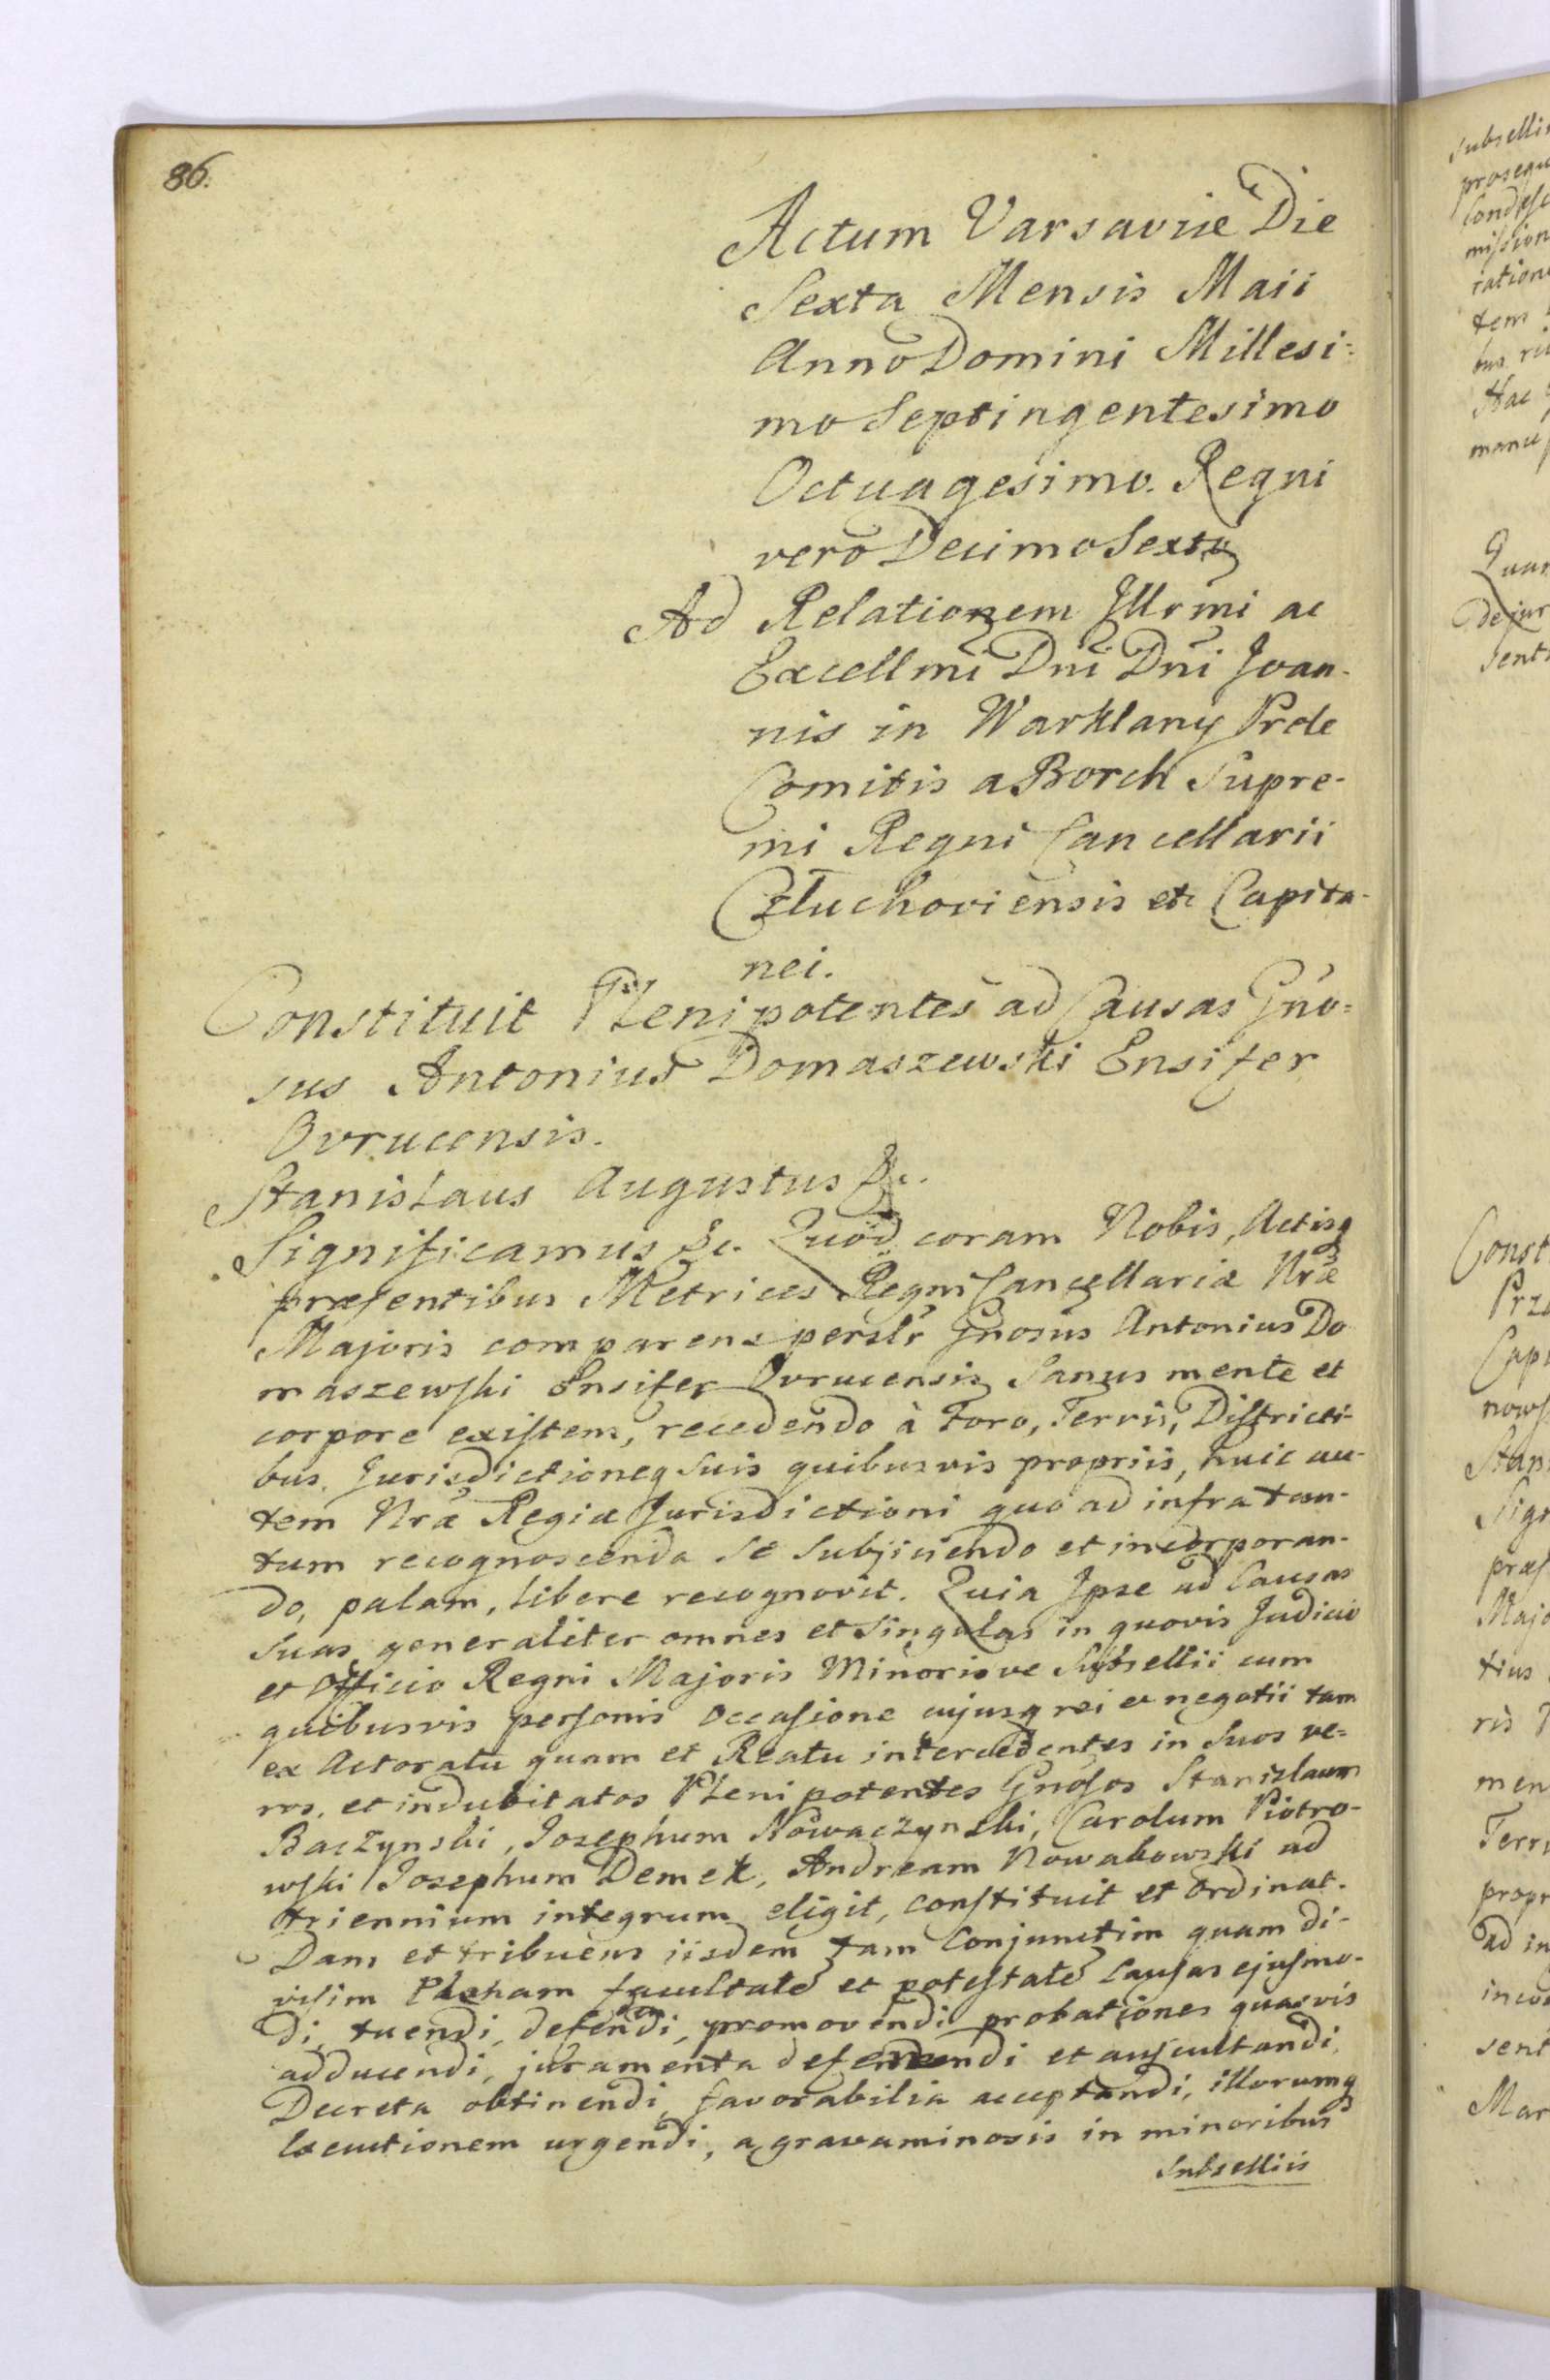 86.
Actum Varsaviæ Die
Sexta Mensis Maii
Anno Domini Millesi=
mo Septingentesimo
Octuagesimo. Regni
vero Decimo Sexto
Ad Relationem Jllrmi ac
Excellmi Dni Dni Joan-
nis in Warklany Prele
Comitis a Borch Supre-
mi Regni Cancellarii
Człuchoviensis etc Capita-
nei.
Constituit Plenipotentes ad Causas Gno=
sus Antonius Domaszewski Ensifer
Ovrucensis.
Stanislaus Augustus &c.
Significamus &c. Quod coram Nobis, Actisq
præsentibus Metrices Regni Cancellariæ Nræ
Majoris comparens perslr Gnosus Antonius Do
maszewski Ensifer Ovrucensis Sanus mente et
corpore existens, recedendo à Foro, Terris, Districti-
bus, Jurisdictioneq suis quibusvis propriis, huic au-
tem Nræ Regiæ Jurisdictioni quo ad infra tan-
tum recognoscenda se subjiciendo et incorporan-
do, palam, libere recognovit. Quia Jpse ad Causas
suas generaliter omnes et singulas in quovis Judicio
et Officio Regni Majoris Minorisve Subsellii cum
quibusvis personis occasione cujusq rei et negotii tam
ex Actoratu quam et Reatu intercedentes in suos ve=
ros, et indubitatos Plenipotentes Gnosos Stanislaum
Baczynski, Josephum Nowaczynski, Carolum Piotro-
wski Josephum Demek, Andream Nowakowski ad
triennium integrum eligit, constituit et ordinat.
Dans et tribuens iisdem tam conjunctim quam di-
visim Plenam facultate et potestate causas ejusmo-
di, tuendi, defendi, promovendi probationes quasvis
adducendi, juramenta deferendi et auscultandi,
Decreta obtinendi, favorabilia acceptandi, illorumq
Executionem urgendi, a gravaminosis in minoribus
Subselliis
subselli
prosequ
mission
ratione
tem
Hac
manu
Quan
de jur
Senti
Const
Prz
Capi
nows
Stan
Sign
præs
Majo
tius
ris
men
Terri
propr
ad in
inco
sent
Mar